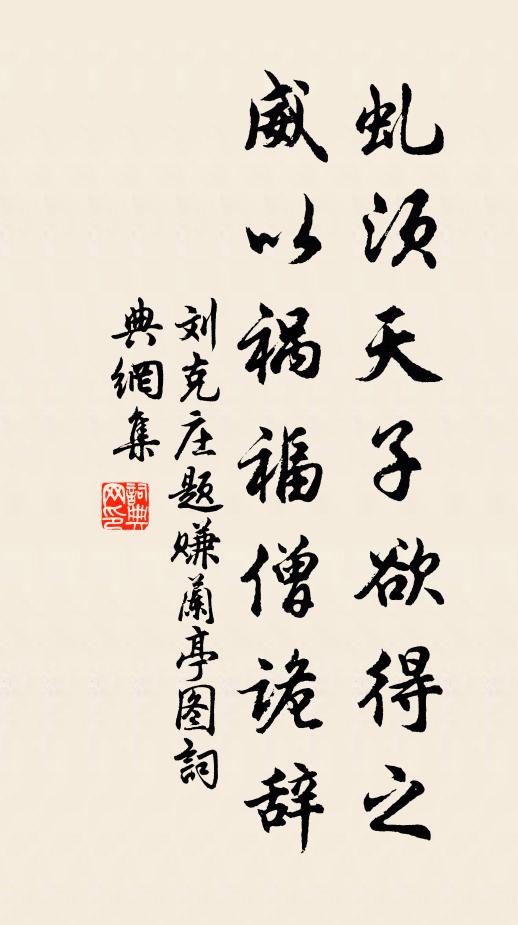 虬须天子欲得之
威以祸福僧诡辞
刘克庄题赚蘭亭图詞
典網集
詞典网印